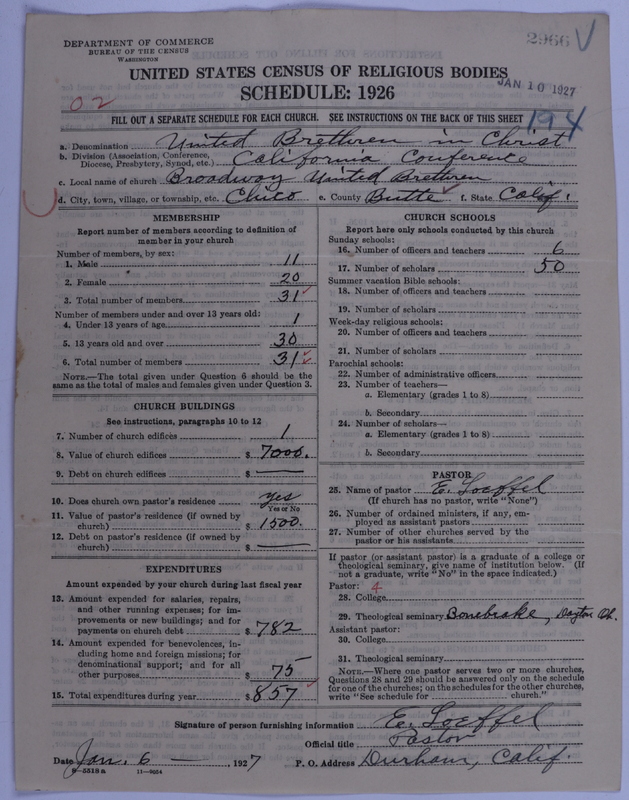 DEPARTMENT OF COMMERCE
BUREAU OF THE CENSUS
WASHINGTON
2966 V
UNITED STATES CENSUS OF RELIGIOUS BODIES
JAN 10 1927
SCHEDULE: 1926
02
194
FILL OUT A SEPARATE SCHEDULE FOR EACH CHURCH. SEE INSTRUCTIONS ON THE BACK OF THIS SHEET
a. Denomination United Brethren in Christ
b. Division (Association, Conference, Diocese, Presbytery, Synod, etc.) California Conference
c. Local name of church Broadway United Brethren
d. City, town, village, or township, etc. Chico e. County Butte f. State Calif.
MEMBERSHIP
Report number of members according to definition of
member in your church
Number of members, by sex:
1. Male 11
2. Female 20
3. Total number of members 31
Number of members under and over 13 years old:
4. Under 13 years of age 1
5. 13 years old and over 30
6. Total number of members 31
NOTE.—The total given under Question 6 should be
same as the total of males and females given under Question 3.
CHURCH BUILDINGS
See instructions, paragraphs 10 to 12
7. Number of church edifices 1
8. Value of church edifices $ 7000.
9. Debt on church edifices $ —
10. Does church own pastor's residence yes
Yes or No
11. Value of pastor's residence (if owned by
church) $ 1500.
12. Debt on pastor's residence (if owned by
church) $ —
EXPENDITURES
Amount expended by your church during last fiscal year
13. Amount expended for salaries, repairs,
and other running expenses; for im-
provements or new buildings; and for
payments on church debt $ 782
14. Amount expended for benevolences, in-
cluding home and foreign missions; for
denominational support; and for all
other purposes $ 75
15. Total expenditures during year $ 857
CHURCH SCHOOLS
Report here only schools conducted by this church
Sunday schools:
16. Number of officers and teachers 6
17. Number of scholars 50
Summer vacation Bible schools:
18. Number of officers and teachers
19. Number of scholars
Week-day religious schools:
20. Number of officers and teachers
21. Number of scholars
Parochial schools:
22. Number of administrative officers
23. Number of teachers—
a. Elementary (grades 1 to 8)
b. Secondary
24. Number of scholars—
a. Elementary (grades 1 to 8)
b. Secondary
PASTOR
25. Name of pastor E. Loeffel
(If church has no pastor, write "None")
26. Number of ordained ministers, if any, em-
ployed as assistant pastors
27. Number of other churches served by the
pastor or his assistants
If pastor (or assistant pastor) is a graduate of a college or
theological seminary, give name of institution below. (If
not a graduate, write "No" in the space indicated.)
Pastor: 4
28. College
29. Theological seminary Bonebrake, Dayton Oh.
Assistant pastor:
30. College
31. Theological seminary
NOTE.—Where one pastor serves two or more churches,
Questions 28 and 29 should be answered only on the schedule
for one of the churches; on the schedules for the other churches,
write "See schedule for church."
Signature of person furnishing information E. Loeffel
Official title Pastor
Date Jan. 6 — 1927 P. O. Address Durham, Calif.
8—5518a 11—9024